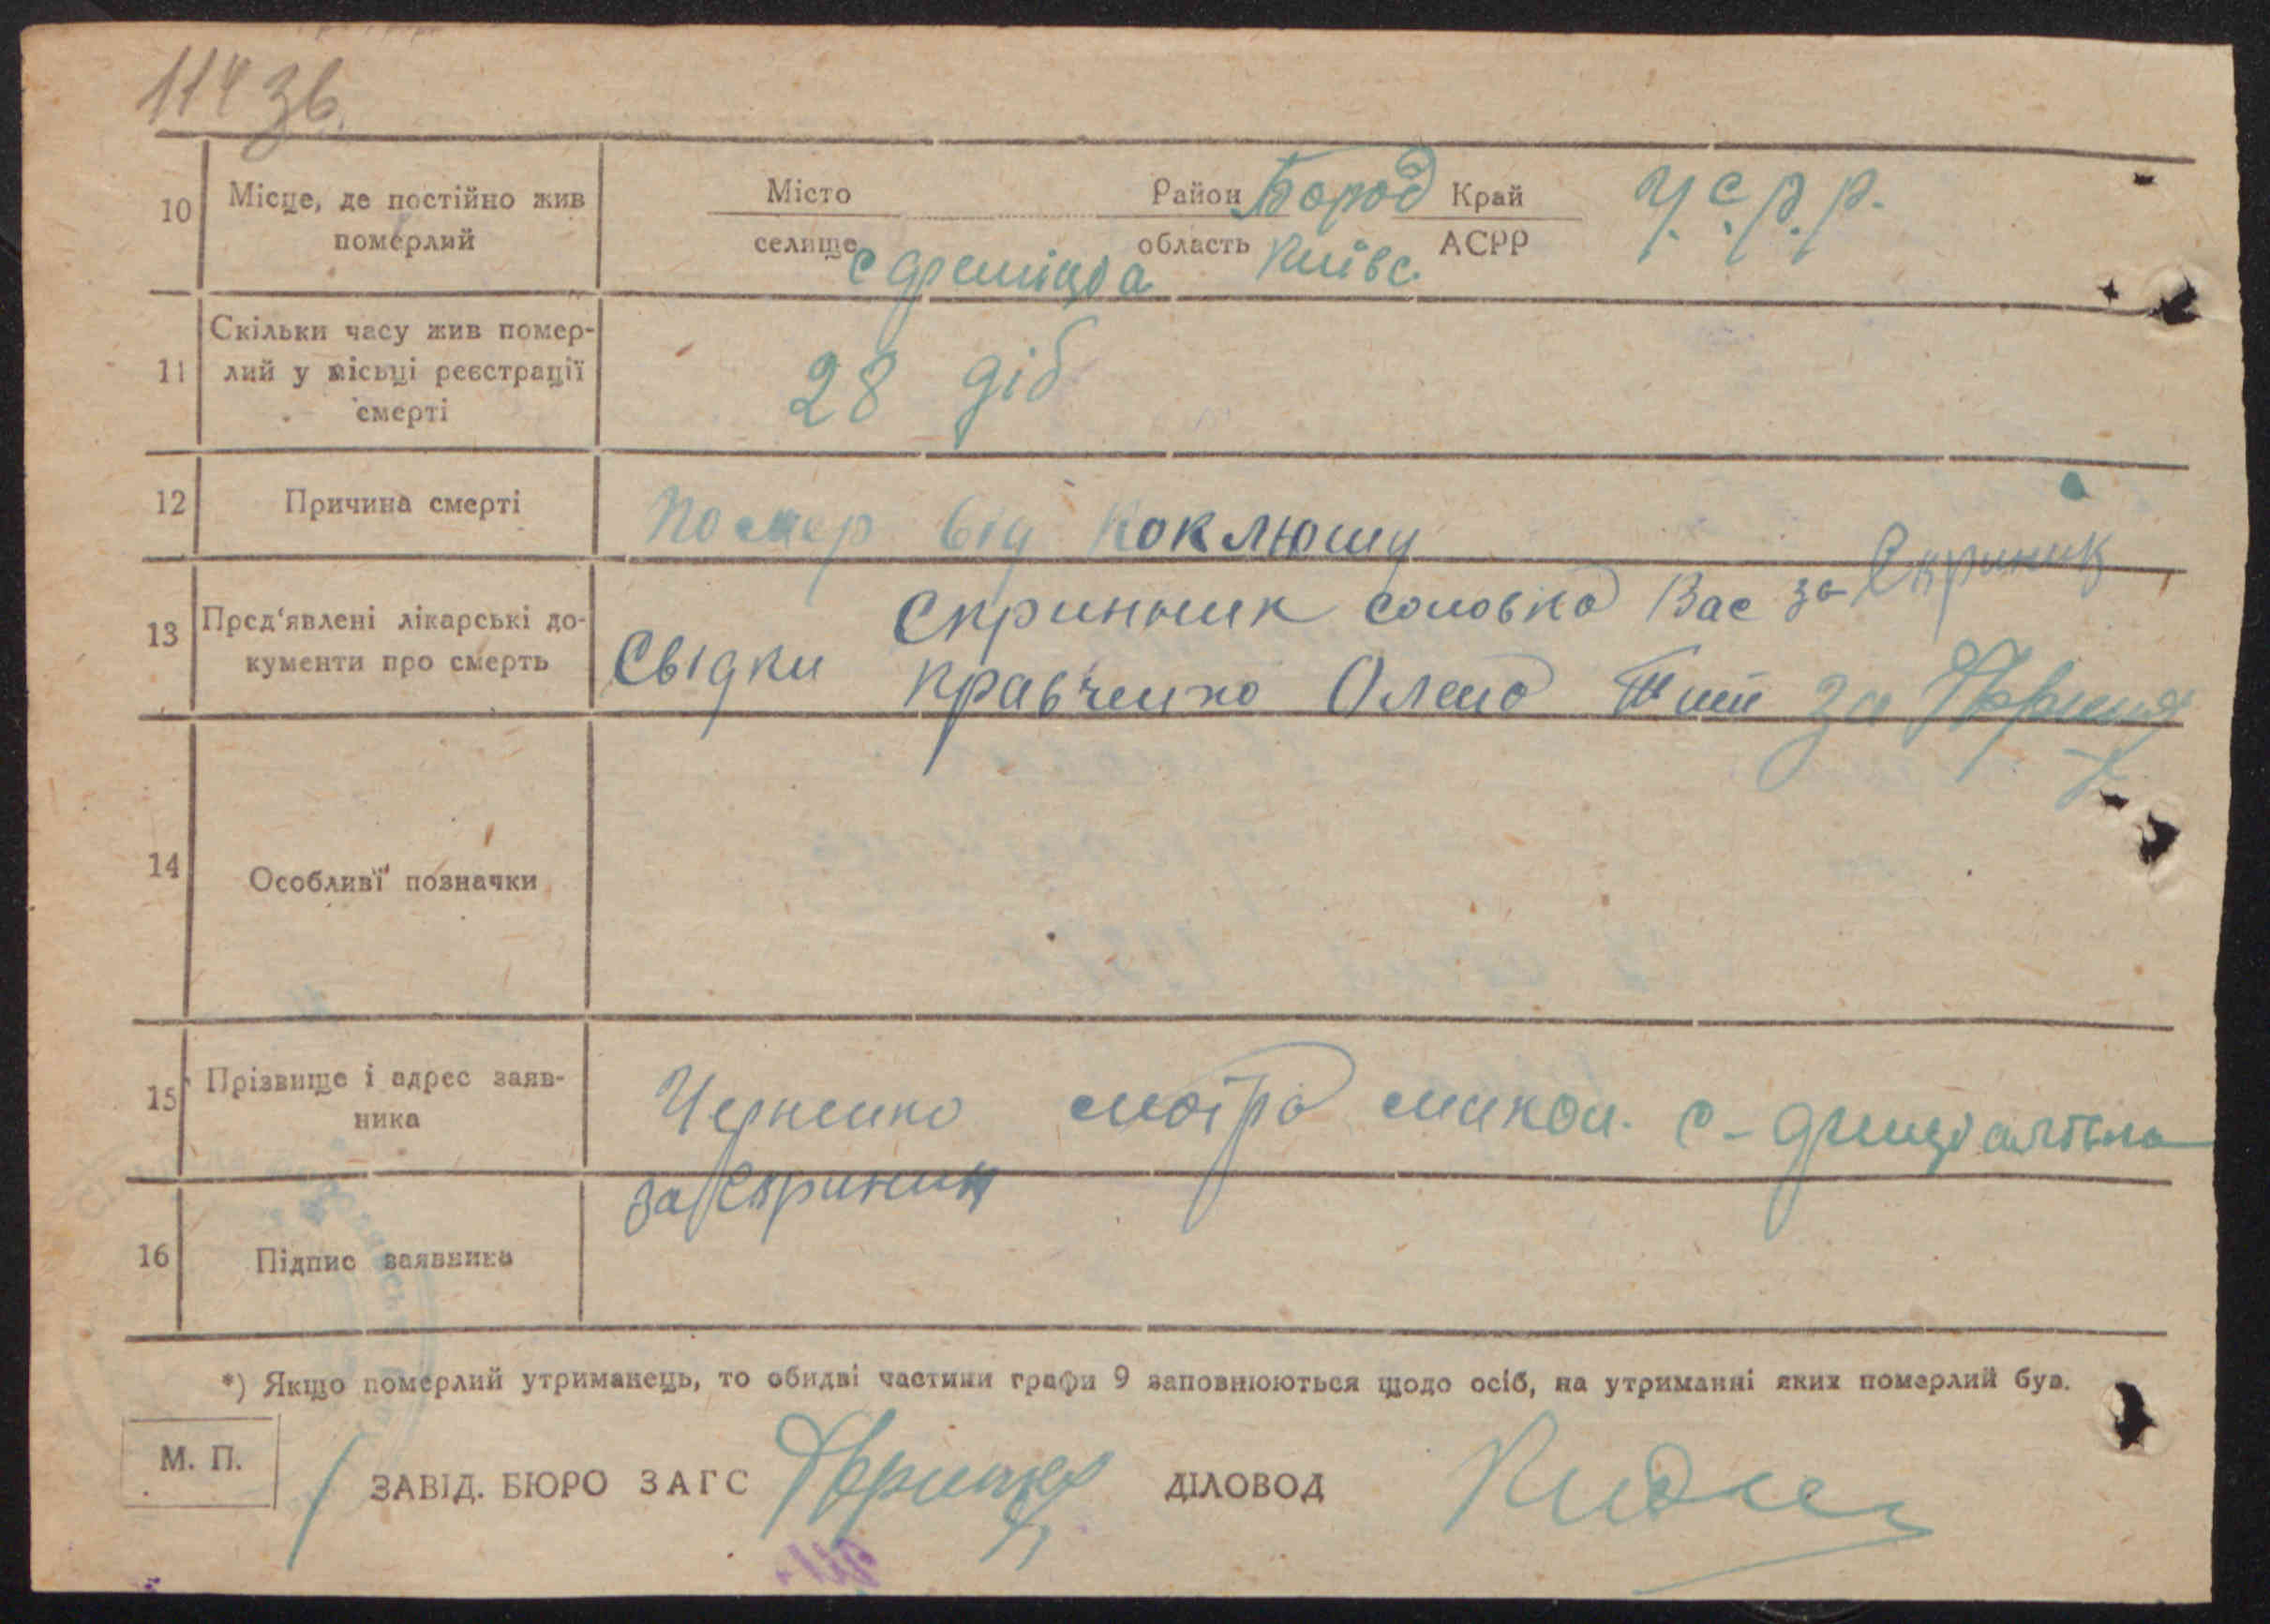 114 зв.
10 Місце, де постійно жив померлий
Місто Район Бород Край У.С.Р.Р.
селище область Київс. АСРР
11 Скільки часу жив помер-
лий у місьці реєстрації
смерті
28 діб
12 Причина смерті
Помер від коклюшу
13 Пред'явлені лікарські до-
кументи про смерть
Скринник Вас за Скриник
Свідки Кравченко Олена за
14 Особливі позначки
15 Прізвище і адрес заяв-
ника
Черненко мотра микол. с-
за Скриник
16 Підпис заявника
*) Якщо померлий утриманець, то обидві частини графи 9 заповнюються щодо осіб, на утриманні яких померлий був.
М. П.
ЗАВІД. БЮРО ЗАГС ДІЛОВОД